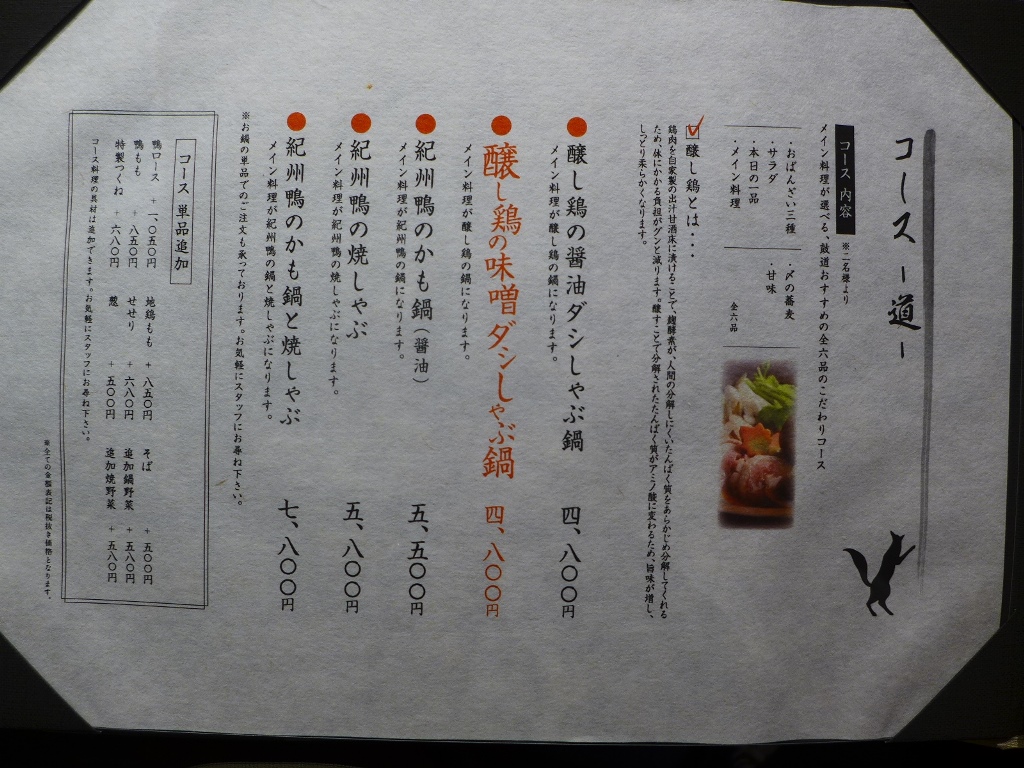 コース ー道ー
コース 内容
※二名様より
メイン料理が選べる、鼓道おすすめの全六品のこだわりコース
・おばんざい三種
・サラダ
・本日の一品
・メイン料理
・〆の蕎麦
・甘味
全六品
醸し鶏とは・・・
鶏肉を自家製の出汁甘酒床に漬けることで、麹酵素が、人間の分解しにくいたんぱく質をあらかじめ分解してくれる
ため、体にかかる負担がグンと減ります。醸すことで分解されたたんぱく質がアミノ酸に変わるため、旨味が増し、
しっとり柔らかくなります。
醸し鶏の醤油ダシしゃぶ鍋 四、八〇〇円
メイン料理が醸し鶏の鍋になります。
醸し鶏の味噌ダシしゃぶ鍋 四、八〇〇円
メイン料理が醸し鶏の鍋になります。
紀州鴨のかも鍋(醤油) 五、五〇〇円
メイン料理が紀州鴨の鍋になります。
紀州鴨の焼しゃぶ 五、八〇〇円
メイン料理が紀州鴨の焼しゃぶになります。
紀州鴨のかも鍋と焼しゃぶ 七、八〇〇円
メイン料理が紀州鴨の鍋と焼しゃぶになります。
※お鍋の単品でのご注文も承っております。お気軽にスタッフにお尋ね下さい。
コース 単品追加
鴨ロース + 一、〇五〇円 地鶏もも + 八五〇円 そば + 五〇〇円
鴨もも + 八五〇円 せせり + 六八〇円 追加鍋野菜 + 五八〇円
特製つくね + 六八〇円 葱 + 五〇〇円 追加焼野菜 + 五八〇円
コース料理の具材は追加できます。お気軽にスタッフにお尋ね下さい。
※全ての金額表記は税抜き価格となります。